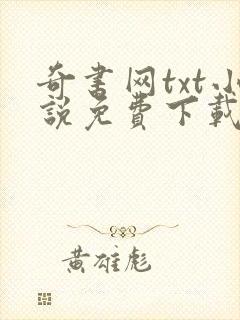 奇書网txt小
說免費下載
黄雄彪